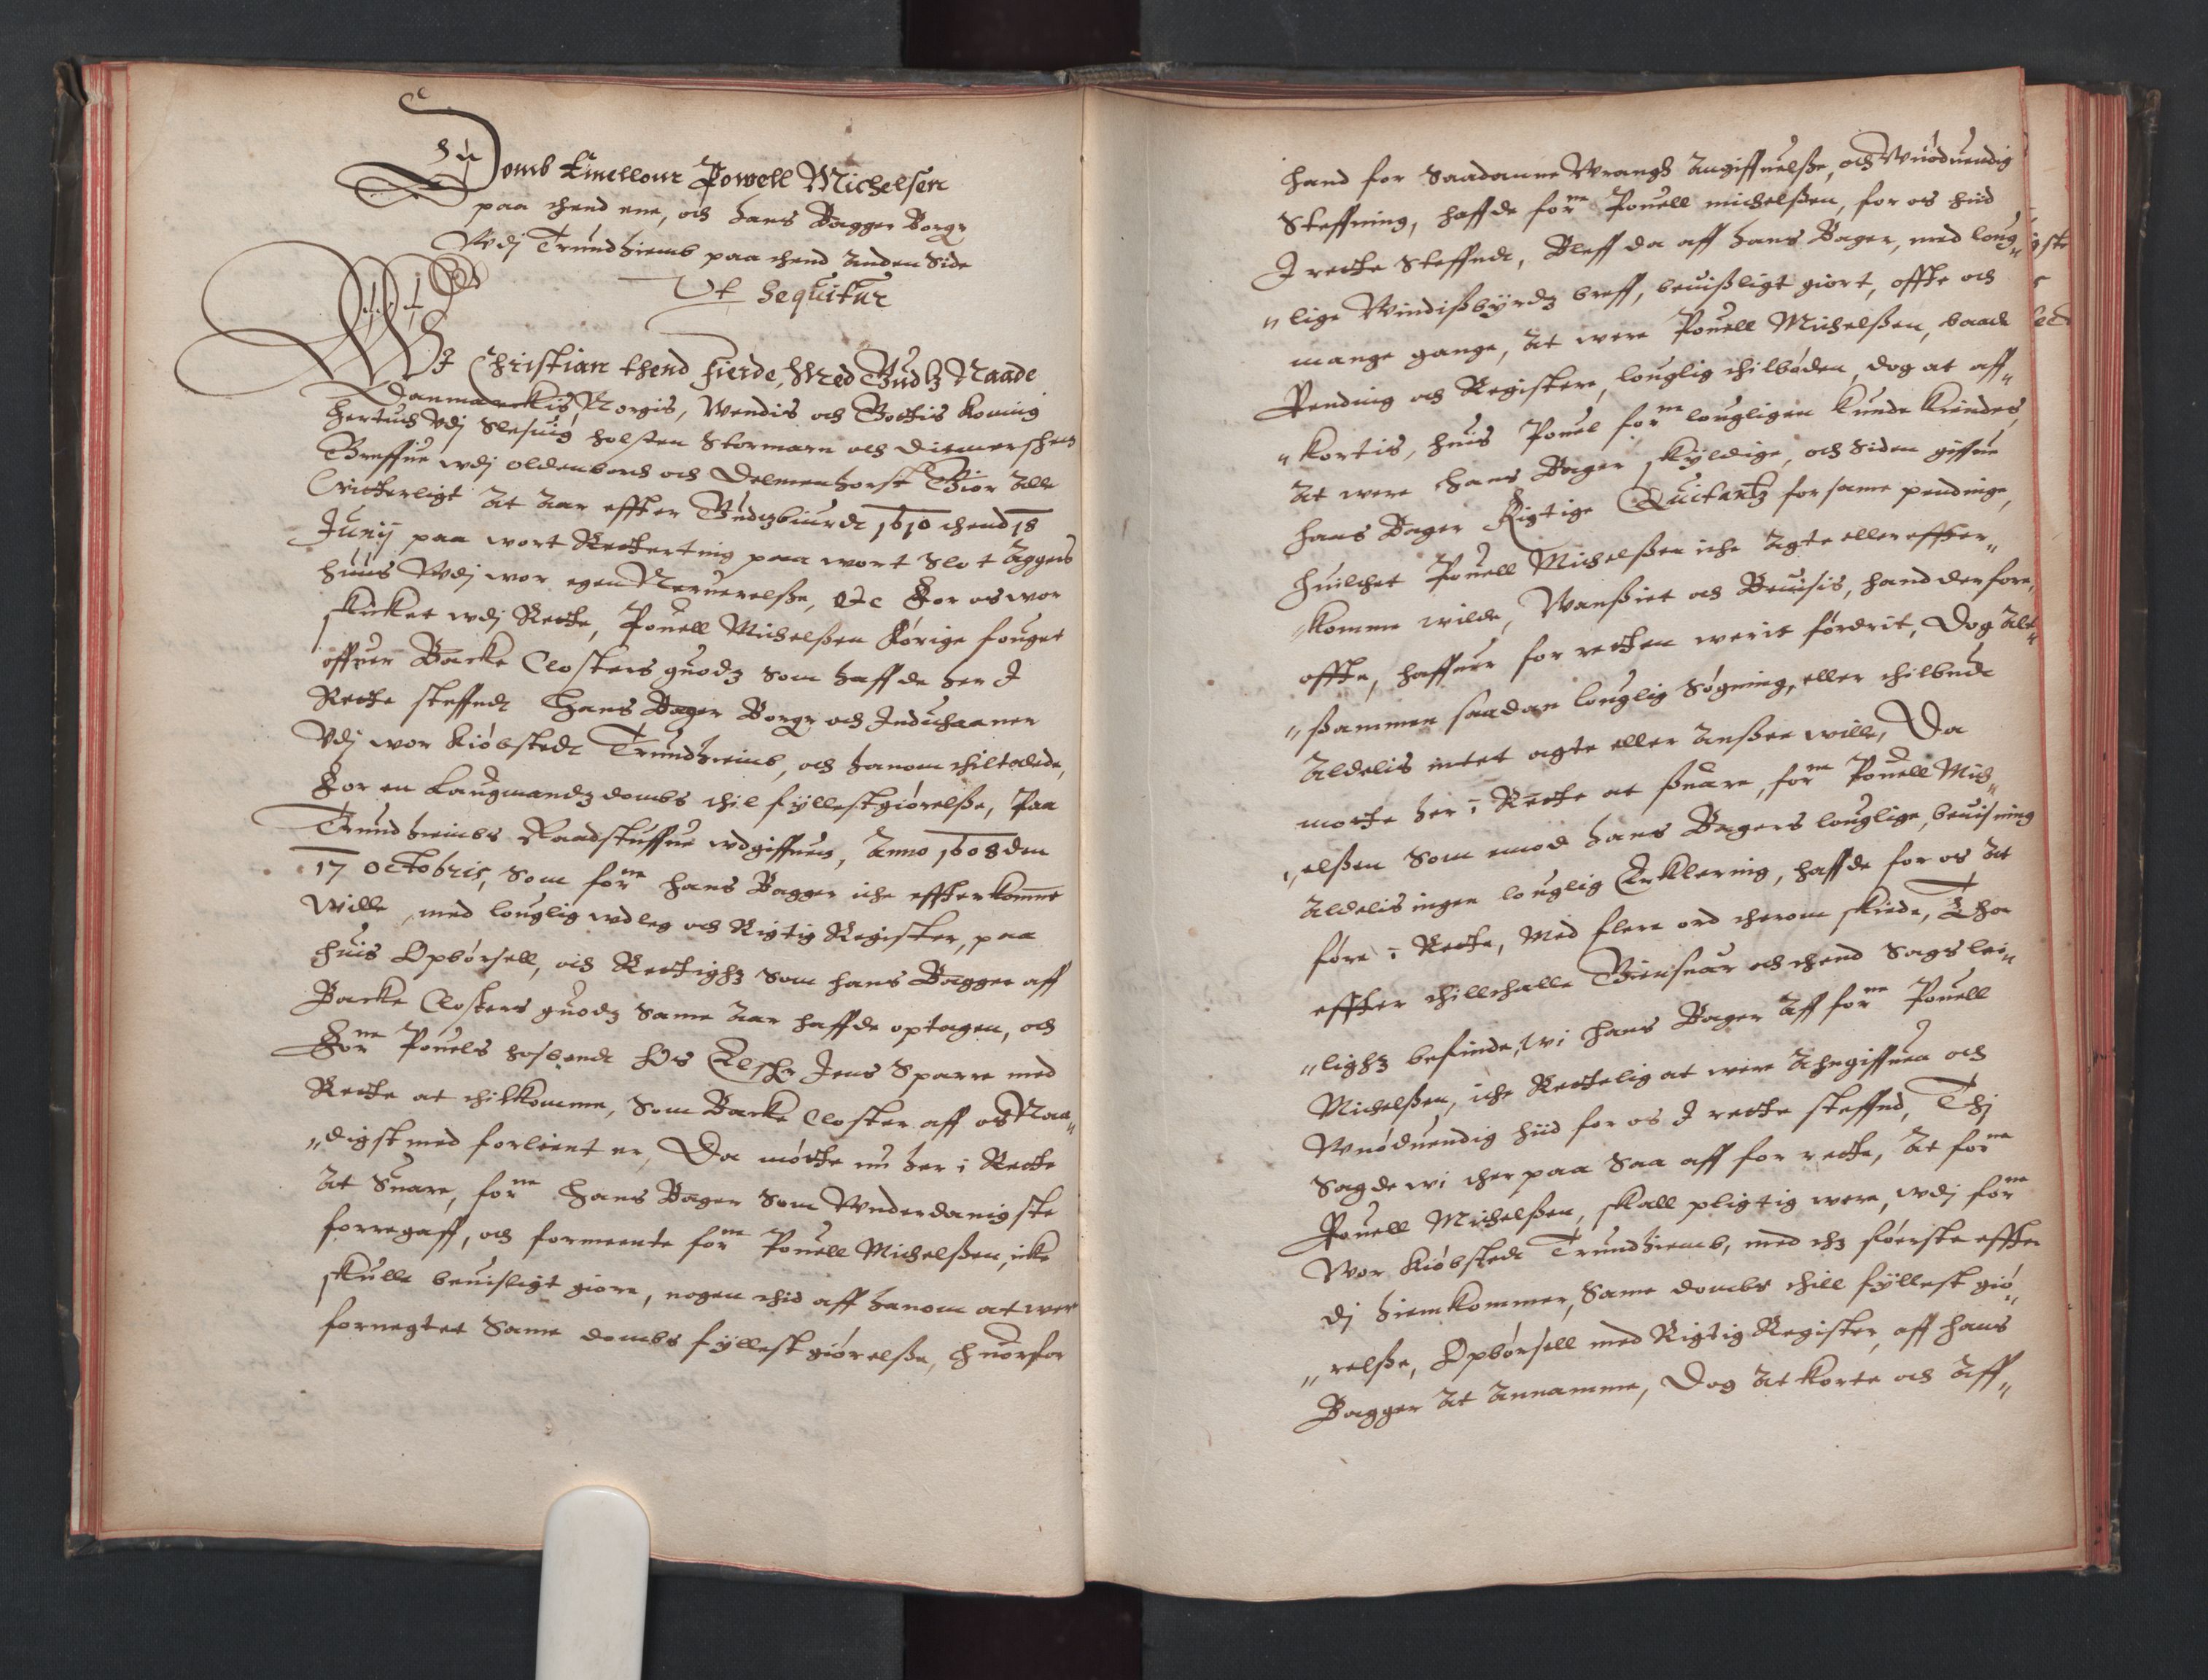 En Domb Emellom Powell Michelsen
paa thend ene, och hans Bagger Borgr
Wdj Trundhiemb paa thend Anden Side
Ut Sequitur
Wii Christian thend Fierde, Med Gudtz Naade
Danmarckis Norgis, Wendis och Gottis koning
Hertuch Vdj Slesuig Holsten Stormarn och Ditmerschen
Greffue wdj Oldenborch och Delmenhorst Giør Alle
Witterligt At Aar effter Gudtzbiurdt 1610 thend 18
Junij paa wort Retterting paa wort Slot Aggers
huus Wdj wor egen Neruerelsse, etc For os wor
skicket wdj Rette, Pouell Michelssen Førige fouget
offuer Backe Closters guodz som haffde her I
Rette steffndt Hans Bager Borgr och Indwhaaner
Vdj wor kiøbstedt Trundhiemb, och hanom thiltalede,
For en Laugmandz dombs thil fyllestgiørelsse, Paa
Trundhiembs Raadstuffue wdgiffuen, Anno 1608 den
17 Octobris, Som forne Hans Bagger iche effterkomme
wille, med louglig wdleg och Rigtig Register, paa
huis Opbørsell, och Rettighz Som hans Bagger aff
Backe Closters guodz Same Aar haffde optagen, och
Forne Pouels hosbond Os Elskr Jens Sparre med
Rette at thilkomme, Som Backe Closter aff os Naa„
„digst med forlient er, Da møtte nu her i Rette
At Suare, forne Hans Bager Som Wnderdanigste
forregaff, och formeente forne Pouell Michelssen, icke
skulle beuisligt giøre, nogen thid aff hanom at were
fornegtet Same dombs fyllestgiørelsse, Huorfor
hand for Saadanne Wrangh Angiffuelsse, och Wnøduendig
Steffning, haffde forne Pouell Michelssen, for os hiid
I rette Steffndt, Bleff da aff hans Bager, med loug„
„lige Windissbyrdz breff, beuissligt giort, offte och
mange gange, At were Pouell Michelssen, baade
Pending och Registere, louglig thilbøden, dog at aff„
„kortis, huis Pouel forne lougligen kunde kiendes,
At were Hans Bager skyldige, och Siden giffue
Hans Bager Rigtige Quitantz for same pendinge,
Huilchet Pouell Michelssen iche Agte eller effter„
„komme wilde, Wanssiet och Beuisis, hand derfore,
offte, haffuer for retten werit førdrit, Dog Alt„
„ssammen saadan louglig Søgning, eller thilbudt
Aldelis intet agte eller Anssee wille, Da
møtte her i Rette at ssuare, forne Pouell Mich„
„elssen Som emod Hans Bagers louglige, beuisning
Aldelis ingen louglig Erklering, haffde for os At
føre i Rette, Med flere ord therom skiede, Tha
effter thillthalle Giensuar och thend Sags lei„
„lighz befinde, wi Hans Bager Aff forne Pouell
Michelssen, iche Rettelig at were Ahngiffuen och
Wnøduendig hiid for os I rette steffned, Thj
Sagde wi ther paa Saa aff for rette, At forne
Pouell Michelssen, skall pligtig were, wdj forne
Wor kiøbstedt Trundhiemb, med thz første effter
dj hiemkommer, Same dombs thill fyllest giø„
„relsse, Opbørsell med Rigtig Register, aff Hans
Bagger At Annamme, Dog At korte och Aff„